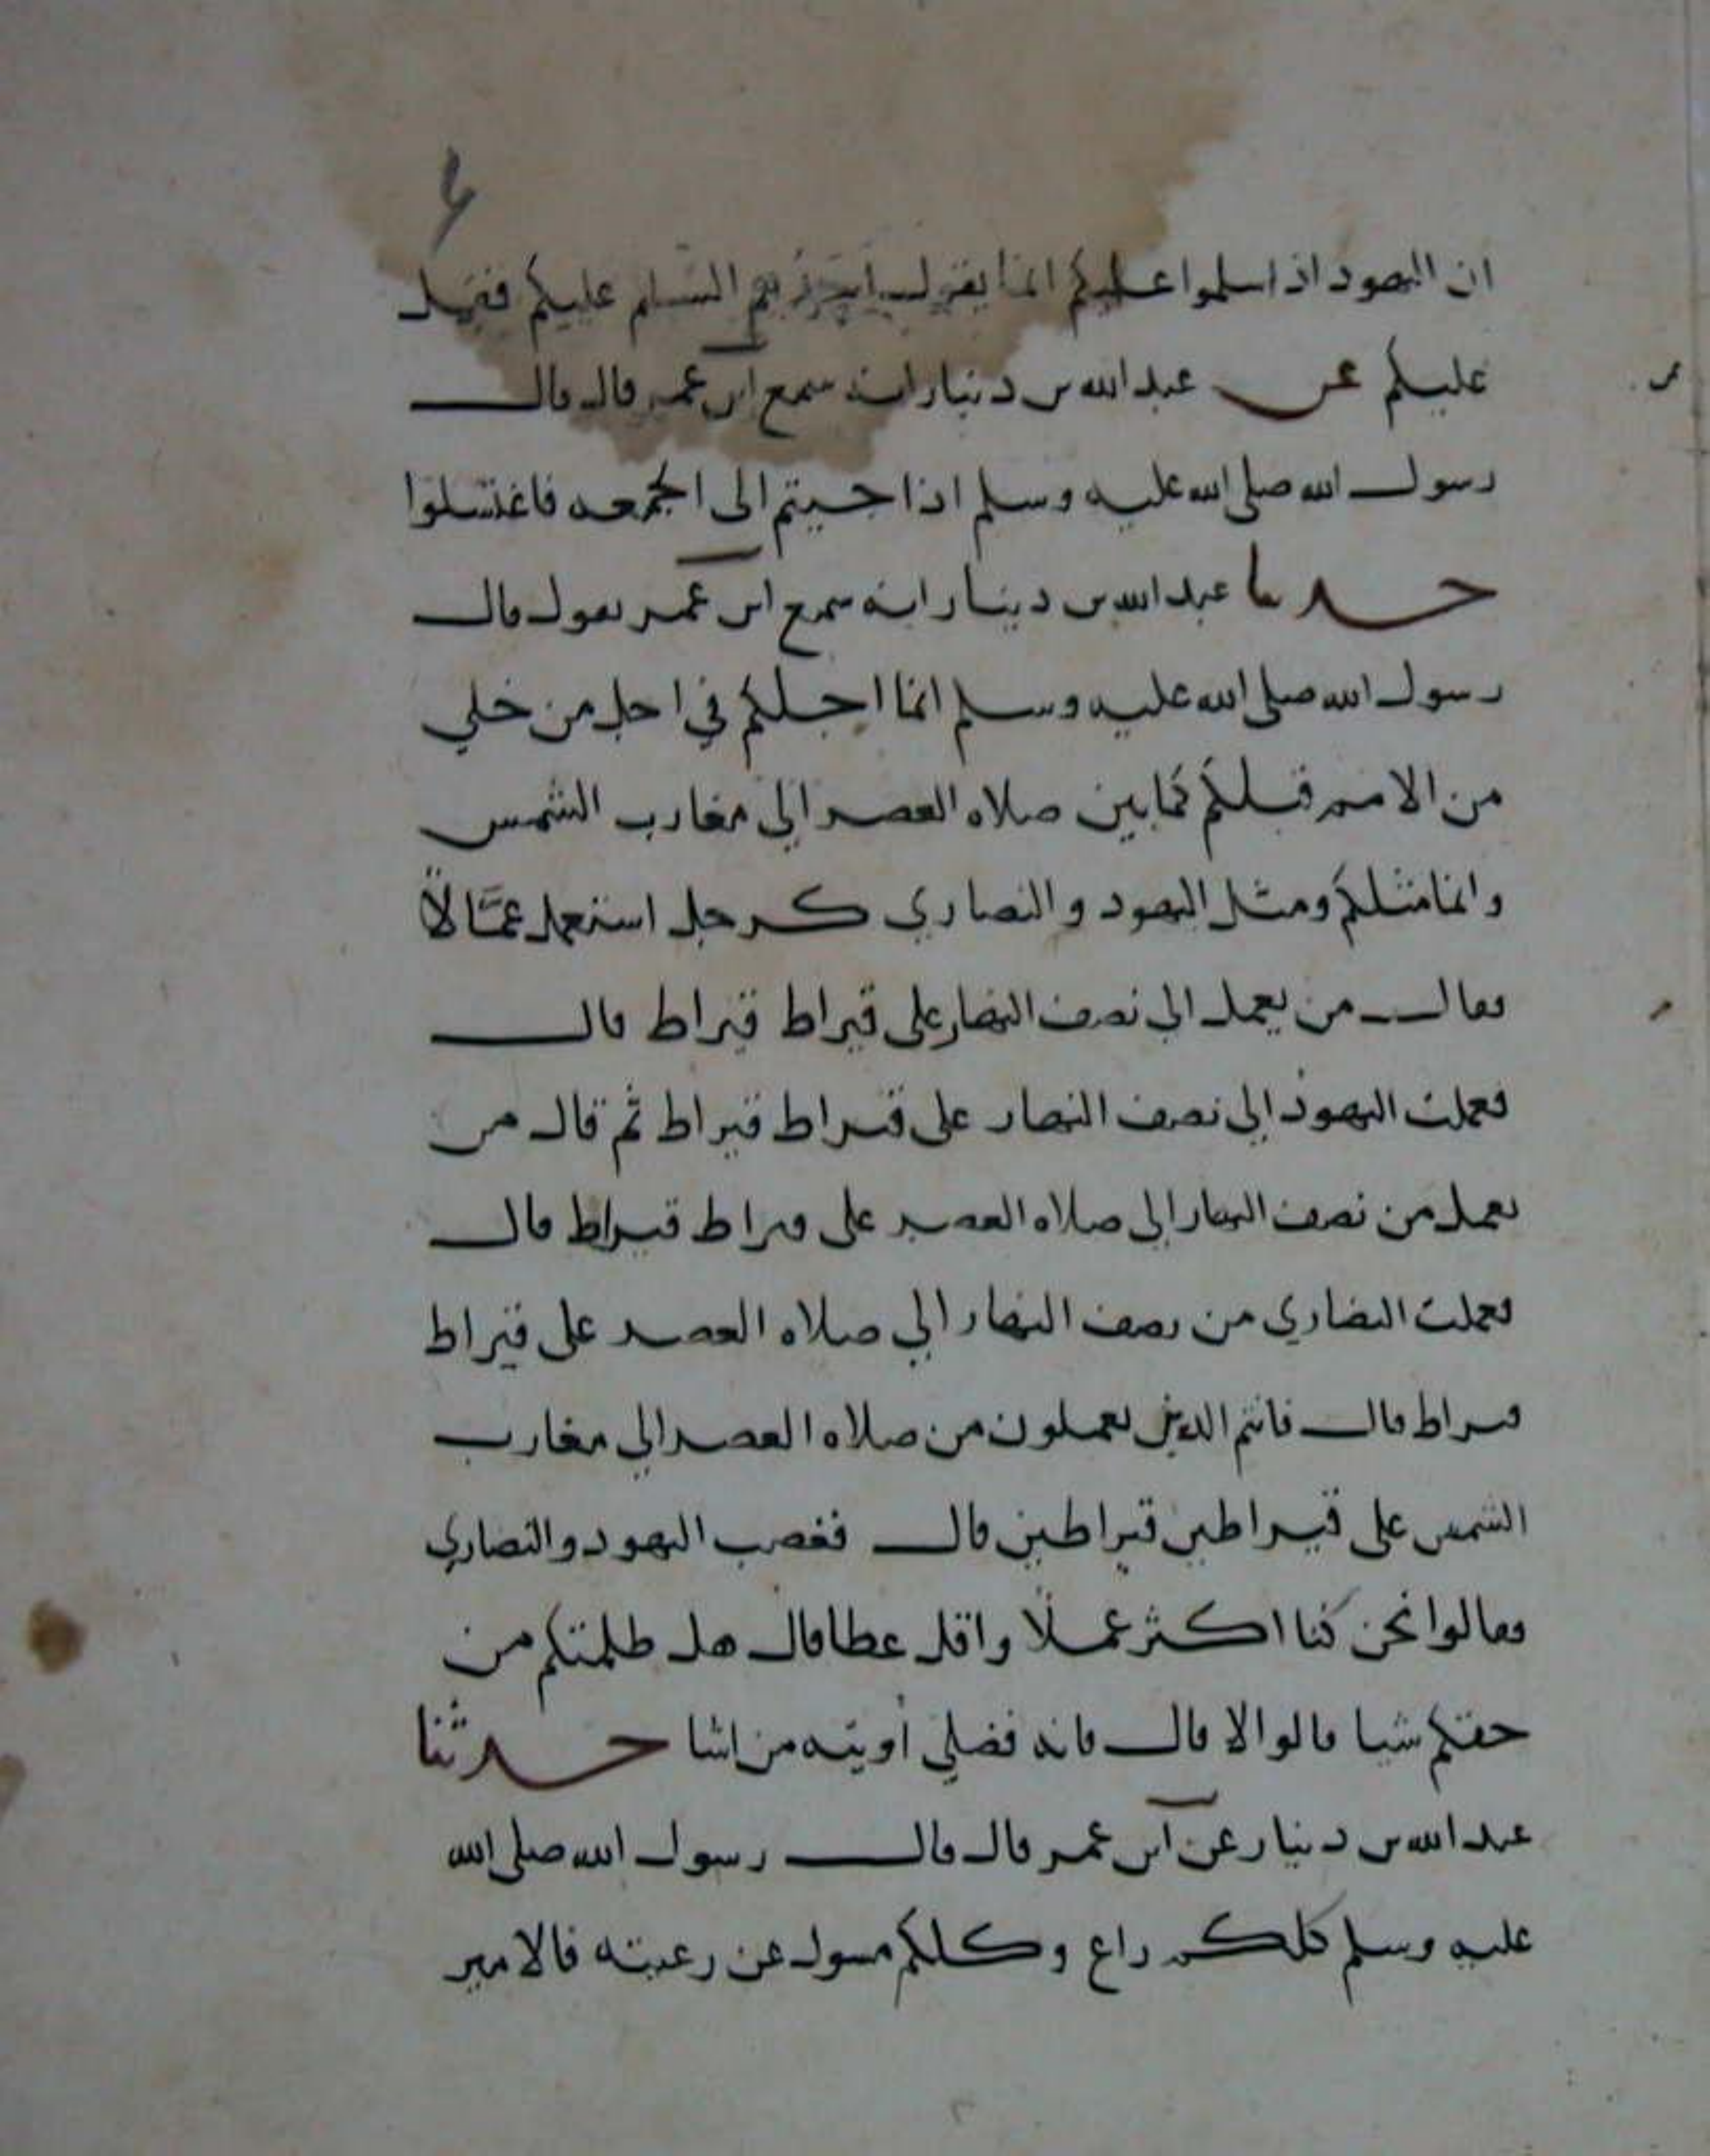 ان اليهود اذ اسلموا عليكم انما يقول احدهم السلم عليكم فقيل
عليكم عن عبد الله بن دينار انه سمع ابن عمر قال قال
رسول الله صلى الله عليه وسلم اذا جيتم الى الجمعه فاغتسلوا
حدثنا عبد الله بن دينار انه سمع ابن عمر يقول قال
رسول الله صلى الله عليه وسلم انما اجلكم في اجل من خلي
من الامم قبلكم كما بين صلاه العصر الي مغارب الشمس
وانما مثلكم ومثل اليهود والنصاري كرجل استعمل عمّالاً
فقال من يعمل الي نصف النهار على قيراط قيراط قال
فعملت اليهود الي نصف النهار على قيراط قيراط ثم قال من
يعمل من نصف النهار الي صلاه العصر على قيراط قيراط قال
فعملت النصاري من نصف النهار الي صلاه العصر على قيراط
قيراط قال فانتم الذين تعملون من صلاه العصر الي مغارب
الشمس على قيراطين قيراطين قال فغضب اليهود والنصاري
فقالوا نحن كنا اكثر عملا واقل عطا قال هل ظلمتكم من
حقكم شيا قالوا لا قال فانه فضلي أوتيته من اشا حدثنا
عبد الله بن دينار عن ابن عمر قال قال رسول الله صلى الله
عليه وسلم كلكم راع وكلكم مسول عن رعيته فالامير